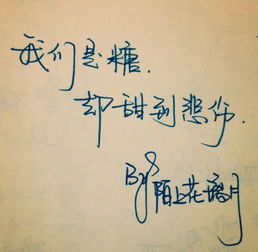 我们是糖.
却甜到悲伤.
By 陌上花语月